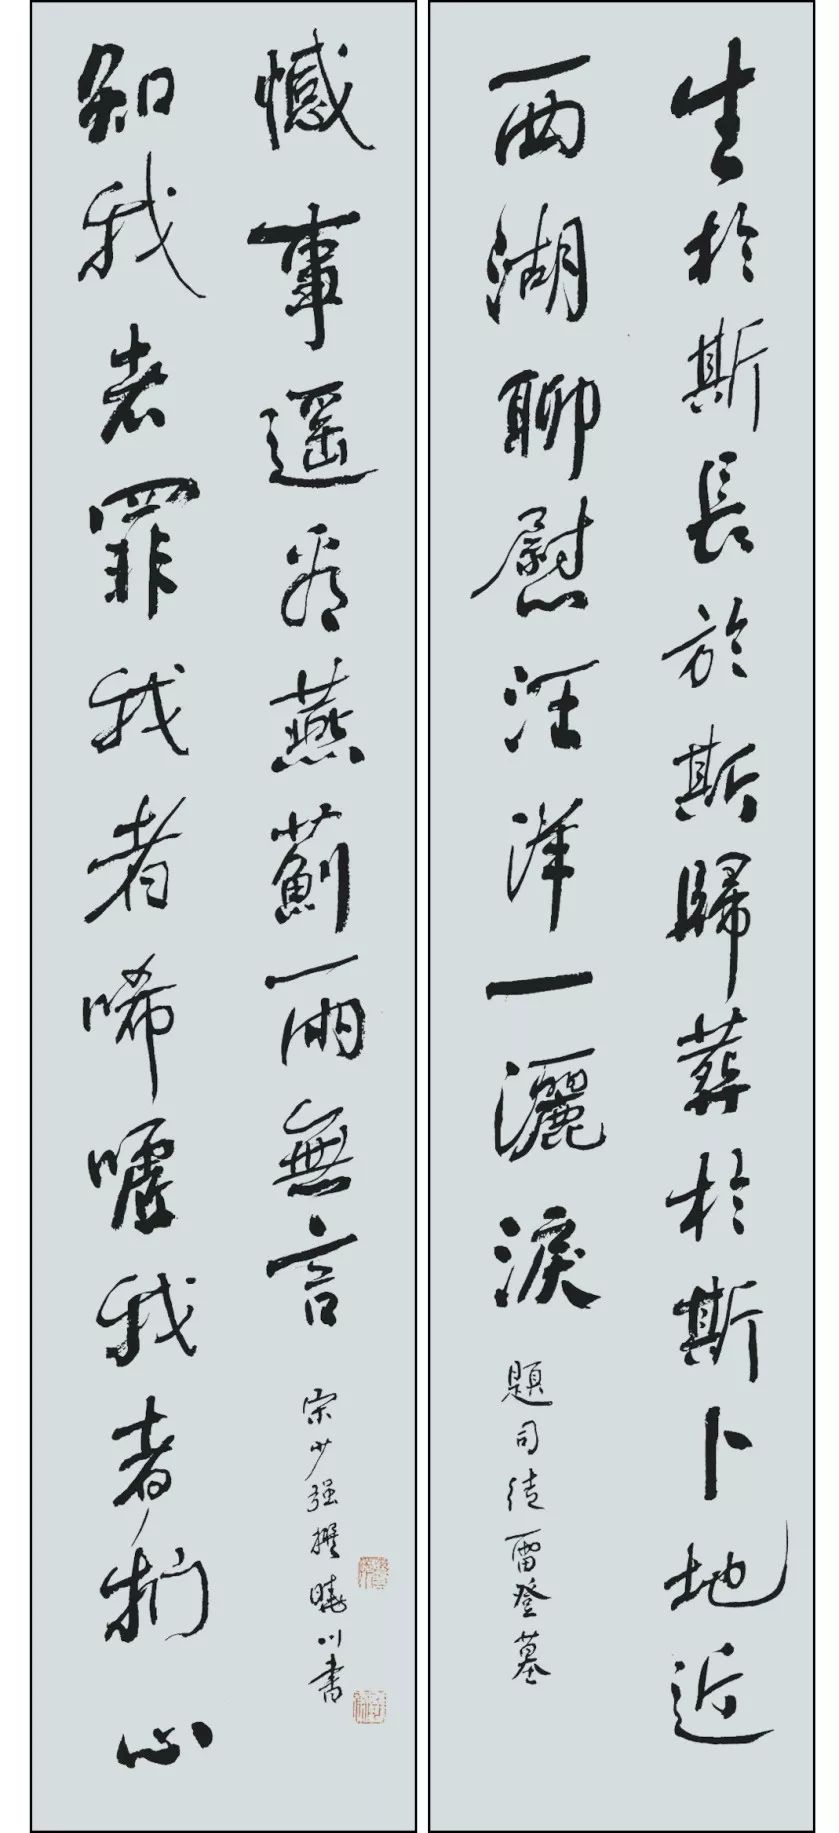 生於斯長於斯歸葬於斯卜地近
西湖聊慰汪洋一灑淚
題司徒雷登墓
知我者罪我者唏噓我者捫心
憾事遥看燕薊兩無言
宋少强撰曉川書